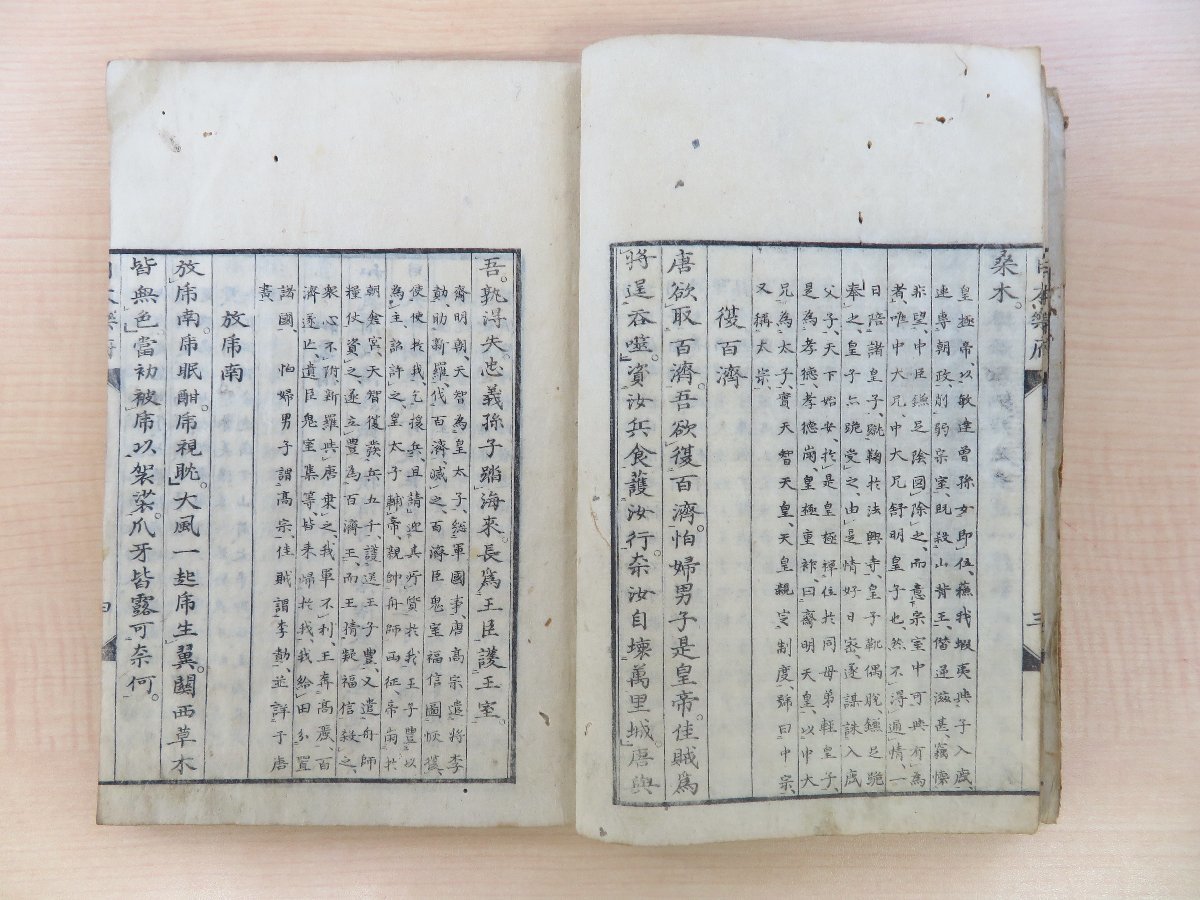 日本樂府
三
桑木。
皇極帝、以敏達曾孫女即位、蘇我蝦夷與子入鹿、
連專朝政、削弱宗室、既殺山背王、僭逼滋甚、藐懷
非望、中臣鎌足陰圖除之、而意宗室中可與有為
者、唯中大兄、中大兄舒明皇子也、然不得通情、一
日陪諸皇子、蹴鞠於法興寺、皇子靴偶脫、鎌足跪
奉之、皇子亦跪受之、由是情好日密、遂謀誅入鹿
父子、天下始安、於是皇極禪位於同母弟輕皇子、
是為孝德、孝德崩、皇極重祚、曰齋明天皇、以中大
兄為太子、實天智天皇、天皇親定制度、號曰中宗、
又稱太宗
復百濟
唐欲取百濟。吾欲復百濟。怕婦男子是皇帝。佳賊為
將逞吞噬。資汝兵食護汝行。奈汝自壞萬里城。唐與
吾。孰得失。忠義孫子踏海來。長為王臣護王室。
齊明朝、天智為皇太子、総軍國事、唐高宗遣將李
勣、助新羅、伐百濟滅之、百濟臣鬼室福信圖恢復、
使使救我、乞援兵、且請迎其所質於我王子豐以
為主、詔許之、皇太子輔帝、親帥舟師西征、帝崩於
朝倉宮、天智復發兵五千、護送王子豐、又遣舟師
糧仗資之、遂立豐為百濟王、而王猜疑福信殺之、
眾心不附、新羅與唐乘之、我軍不利、王奔高麗、百
濟遂亡、遺臣鬼室集等、皆來歸於我、我給田分置
諸國　怕婦男子謂高宗、佳賊謂李勣、並詳于唐
書
放虎南
放虎南。虎眠酣。虎視眈。大風一起虎生翼。關西草木
皆無色。當初被虎以袈裟。爪牙皆露可奈何。
日本樂府
四